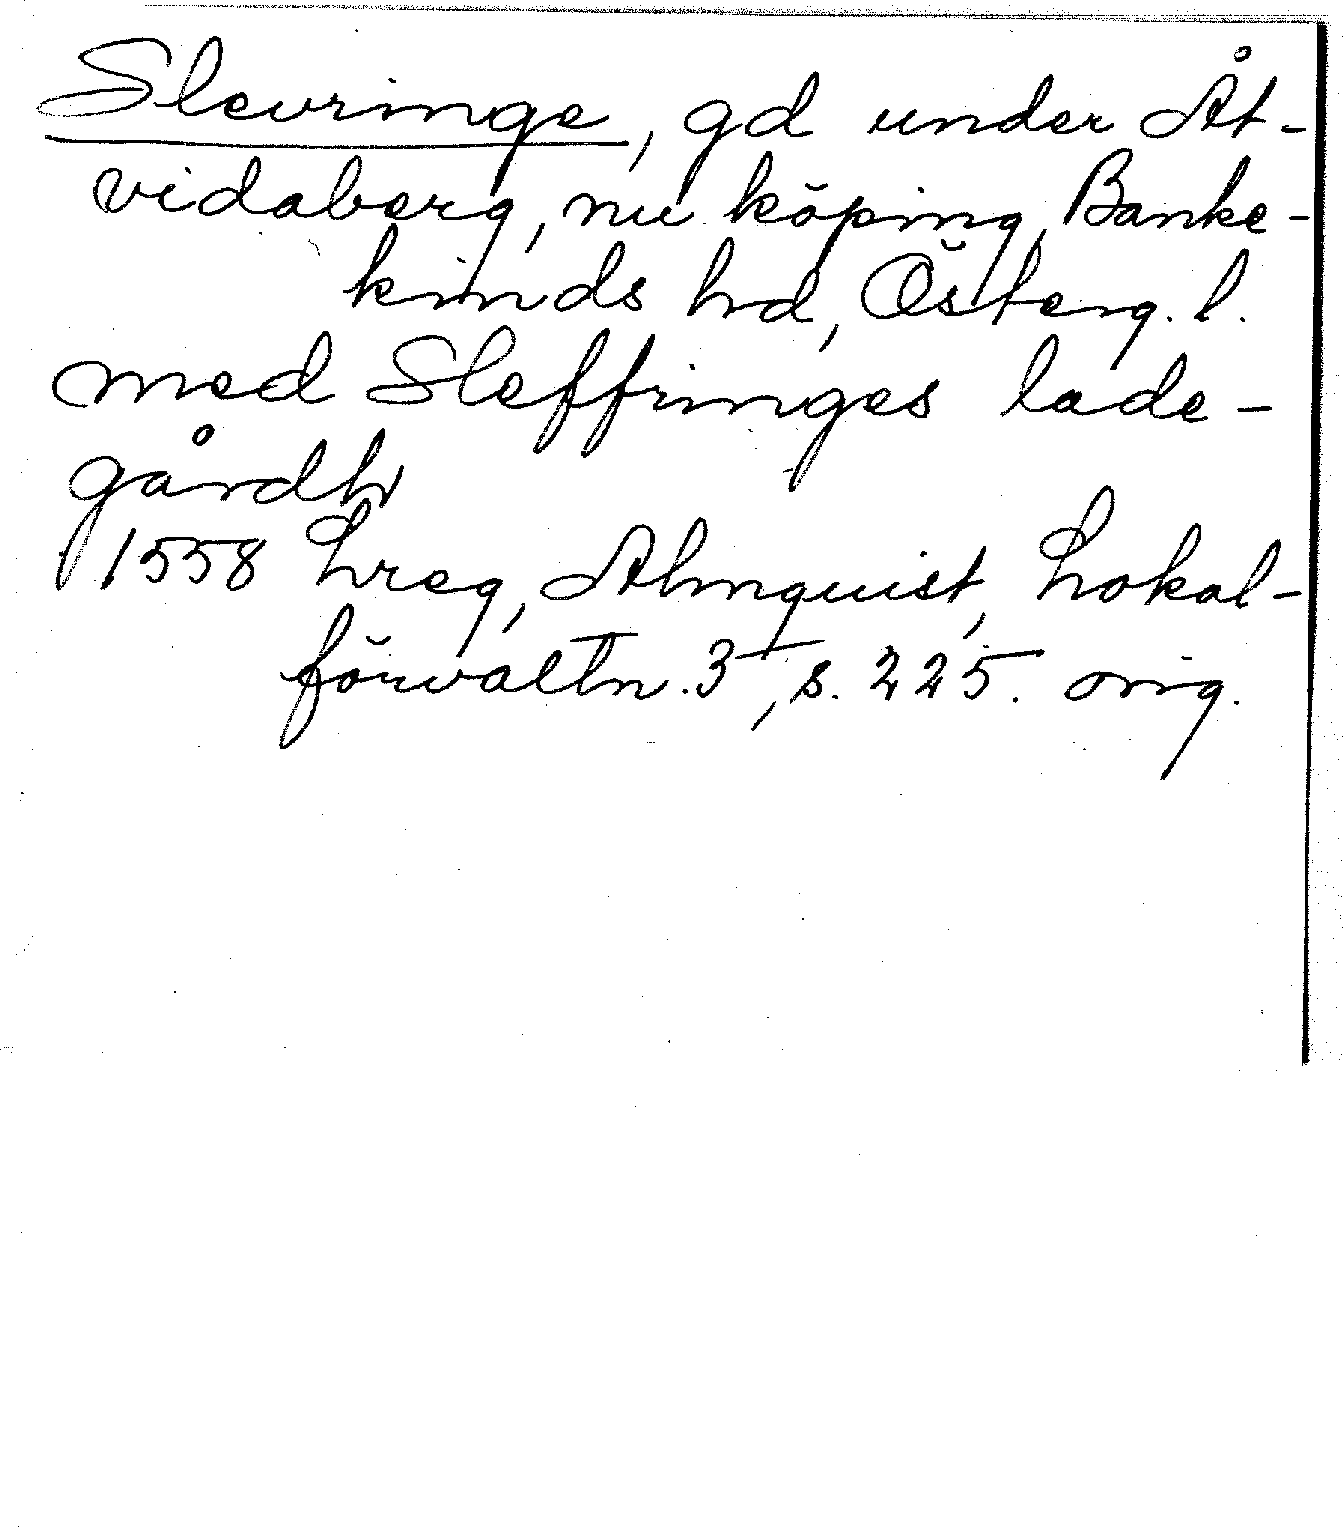 Slevringe, gd under Åt-
vidaberg, nu köping, Banke-
kinds hd, Österg. l.
med Sleffringes lade-
gårdh
1558 Lreg, Almquist, Lokal-
förvaltn. 3, s. 225. orig.